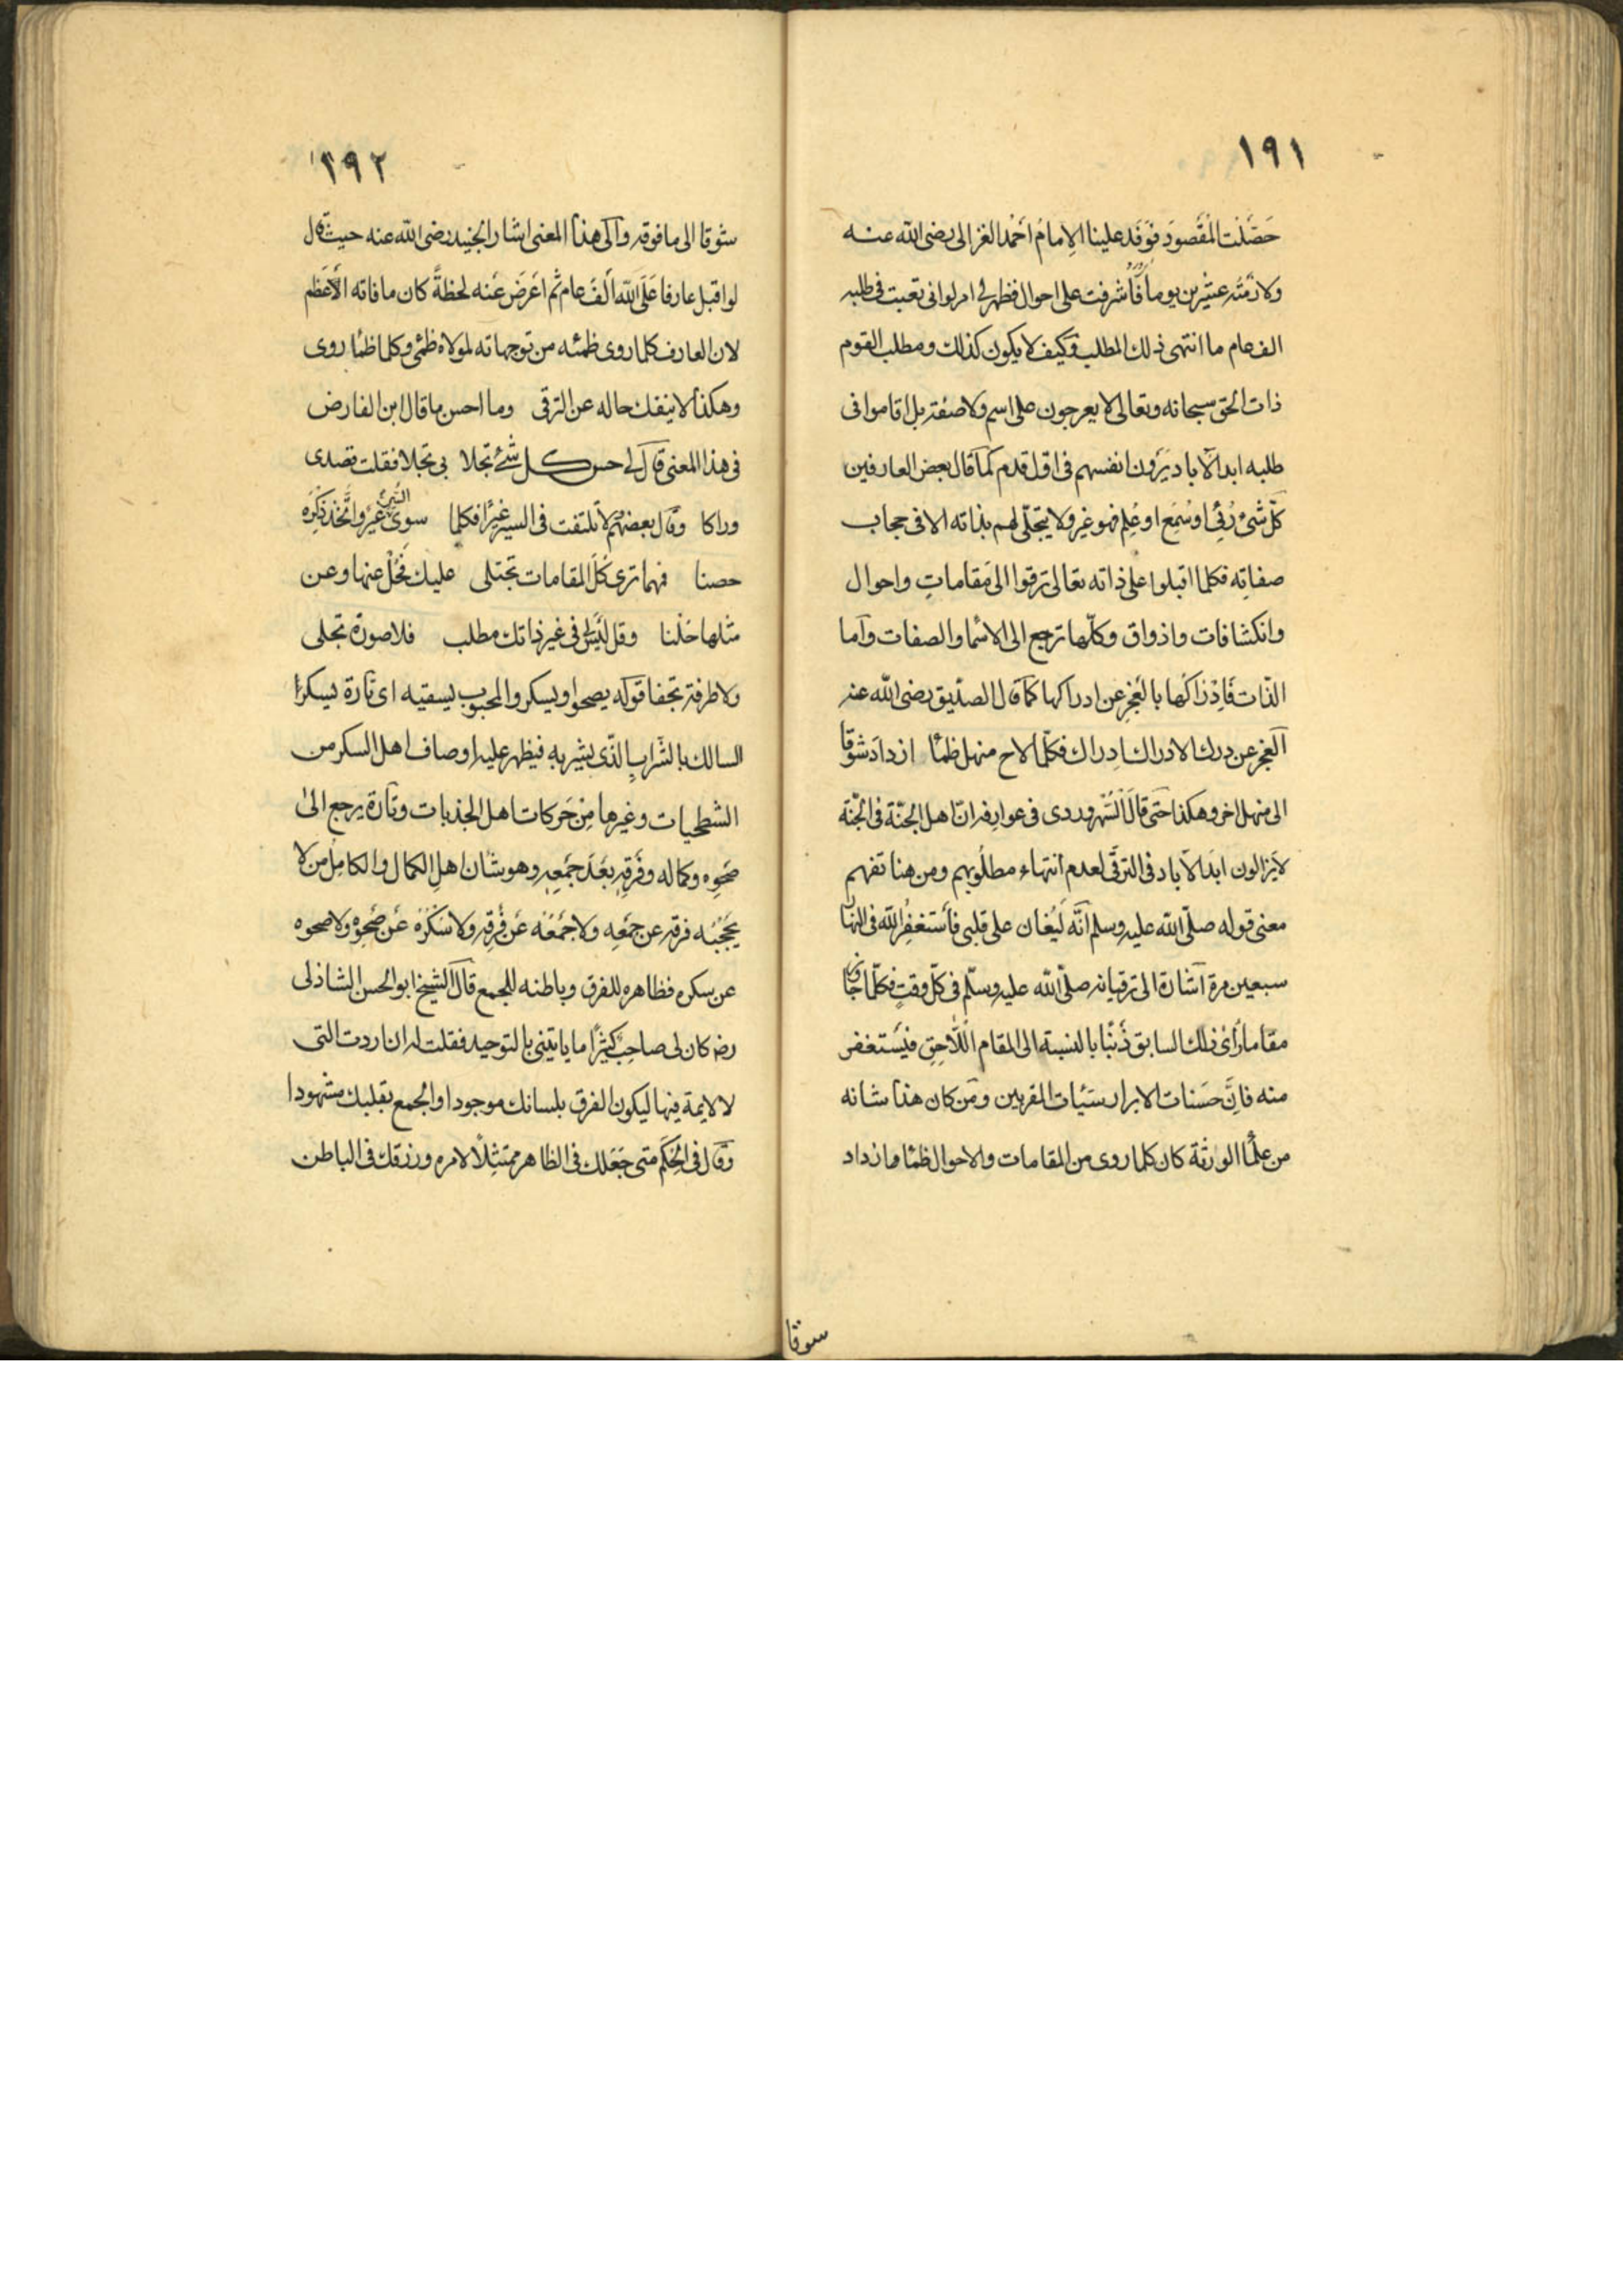 ١٩١
حَصَّلْتَ الْمَقْصودَ فوَفَدَ علينا الإمامُ احْمَد الغزالى رضى الله عنه
ولازمْتُه عشرين يوماً فأشرفت على احوال فظهر لى امر لو انى تعبت فى طلبه
الف عام ما انتهى ذلك المطلب وكيف لا يكون كذلك ومطلب القوم
ذات الحق سبحانه وتعالى لا يعرجون على اسم ولا صفة بل اقاموا فى
طلبه ابد الآباد يَرَون انفسهم فى اوّل قدم كما قال بعض العارفين
كلّ شىء رُئِىَ او سُمِع او عُلِم فهو غير ولا يتجلّى لهم بذاته الا فى حجاب
صفاتِه فكلما اقبلوا على ذاته تعالى ترقوا الى مَقاماتٍ واحوال
وانكشافات واذواق وكلّها ترجع الى الاسْما والصفات وأما
الذّات فَإدْرَاكُها بالعَجْزِ عن ادراكها كما قال الصدّيق رضى الله عنه
العجز عن درك الادراك ادراك فكلّما لاح منهل ظمئا ازدادَ شوْقا
الى منهل اخر وهكذا حَتّى قال السُّهْروردى فى عوارفه انّ اهل الجنّة فى الجنّة
لا يَزالون ابَدَ الآباد فى الترقّى لعدم انتهاء مطلُوبهم ومن هنا تفهم
معنى قوله صلّى الله عليه وسلم انّه لَيُغان على قلبى فأسْتغفِرُ الله فى النهار
سبعين مرة اشارة الى ترقياته صلّى الله عليه وسلّم فى كلّ وقتٍ فكلّما جاوز
مقاما رأى ذلك السابق ذَنْبًا بالنسبة الى المقام اللّاحِقِ فيَستغفر
منه فانَّ حسَنات الابرار سَيّئات المقربين ومَن كان هذا شانه
من علْما الورثة كان كلما روى من المقامات والاحوال ظمئا وازداد
سوقا
١٩٢
شوقا الى ما فوقه والى هذا المعنى اشار الجنيد رضى الله عنه حيث قال
لو اقبل عارفا عَلَى الله ألفَ عام ثم اعَرضَ عَنه لحظةً كان ما فاته الأعظم
لان العارف كلما روى ظمئه من توجهاته لمولاه ظمئ وكلما ظمئا روى
وهكذا لا ينفك حاله عن الترقى وما احسن ما قال ابن الفارض
فى هذا المعنى قال لى حسن كل شئ تجلا بى تجلا فقلت قصدى
وراكا وقال بعضهم لا تلتفت فى السير غيرًا فكلما سوى الشئ غير واتَّخذ ذكِرَه
حصنا فهما ترى كلَّ المقامات تجتلى عليك فَحُلْ عنها وعن
مثلها حُلْنا وقل ليْسَ لى فى غير ذاتك مطلب فلا صورة تجلى
ولا طرفة تجفا قوله يصحوا ويسكر والمحبوب يسقيه اى تارة يسكر
السالك بالشَّرابِ الذّى يشربه فيظهر عليه اوصاف اهل السكر من
الشطحيات وغيرها مِن حَركات اهل الجذبات وتارة يرجع الى
صَحْوِه وكماله وفَرقِه بعَدَ جمْعِهِ وهو شان اهلِ الكمال والكامِل من لا
يَحْجبُه فرقه عن جمْعِه ولا جَمْعُه عَن فَرْقِه ولا سَكْرُه عَن صَحْوِه ولا صحوه
عن سكره فظاهره للفرق وباطنه للجمع قال الشيخ ابو الحسن الشاذلى
رضه كان لى صاحِبٌ كثِيرًا ما ياتينى بالتوحيد فقلت له ان اردت التى
لا لايمة فيها ليكون الفرق بلسانك موجودا والجمع بقلبك مشهودا
وقال فى الحِكَم متى جَعَلك فى الظاهر ممتثِلًا لامره ورزقك فى الباطن